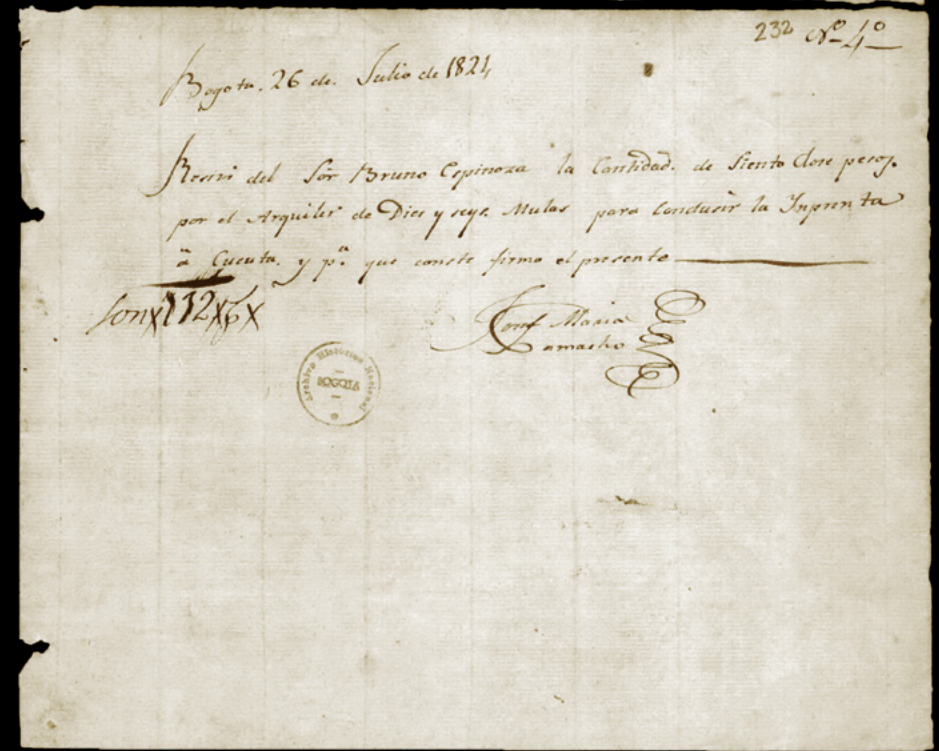 232 Nº 4º
Bogota. 26 de. Julio de 1821
Reciví del Sór Bruno Espinoza la Cantidad. de Siento dose pesos.
por el Arquiler de Dies y seys. Mulas para conducir la Inprenta
a Cucuta. y pª. que conste firmo el presente
Son x 112 x p x
Josef Maria
Camacho
Archivo Histórico Nacional
BOGOTA